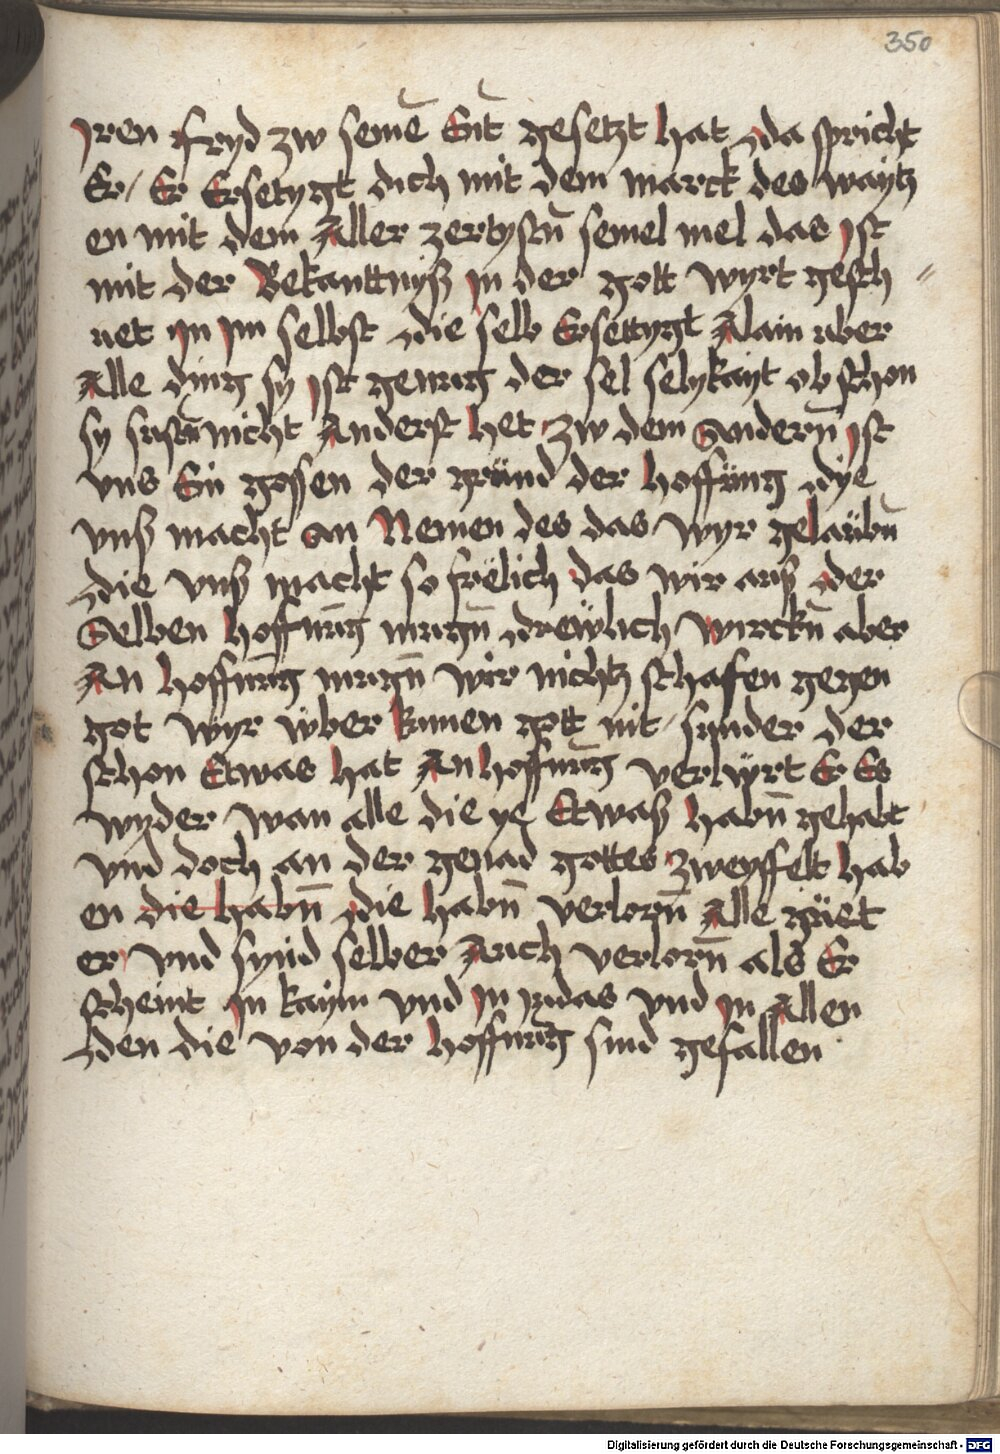 350
Jren fryd zw seinē Eūt gesetzt hat da spricht
Er / Er Ersetygt dich mit dem marck des waytz
en mit dem Aller zertystn̄ semel mel das jst
mit der Bekanttnyß jn der gott wyrt gesch //
uet jn jm selbst die selb Ersettygt Alain uber
Alle ding sy jst genug der sel selykayt ob schon
sy sustn̄ nicht Anderst het zw dem Andern̄ jst
vns Ein gossen der gründ der hoffüng dye
vnß macht an Nemen des das wyr gelaübn̄
die vnß macht so frëlich das wir auß der
Selben hoffnūg mugn̄ drewlich wirckn̄ aber
An hoffnūg mugn̄ wir nichtz schafen gegen
got wyr wber kumen gott nit / sunder der
schon Etwas hat An hoffnūg verlyrt Er Es
wyder wan alle die ye Etwaß habn̄ gehabt
vnd doch an der genad gottes zweyffelt hab
en die habn̄ die habn̄ verlorn̄ Alle güet
er vnd synd selber Auch verlorn̄ als Er
scheint jn kaym vnd jn judas vnd jn Allen
den die von der hoffnūg sind gefallen
Digitalisierung gefördert durch die Deutsche Forschungsgemeinschaft - DFG